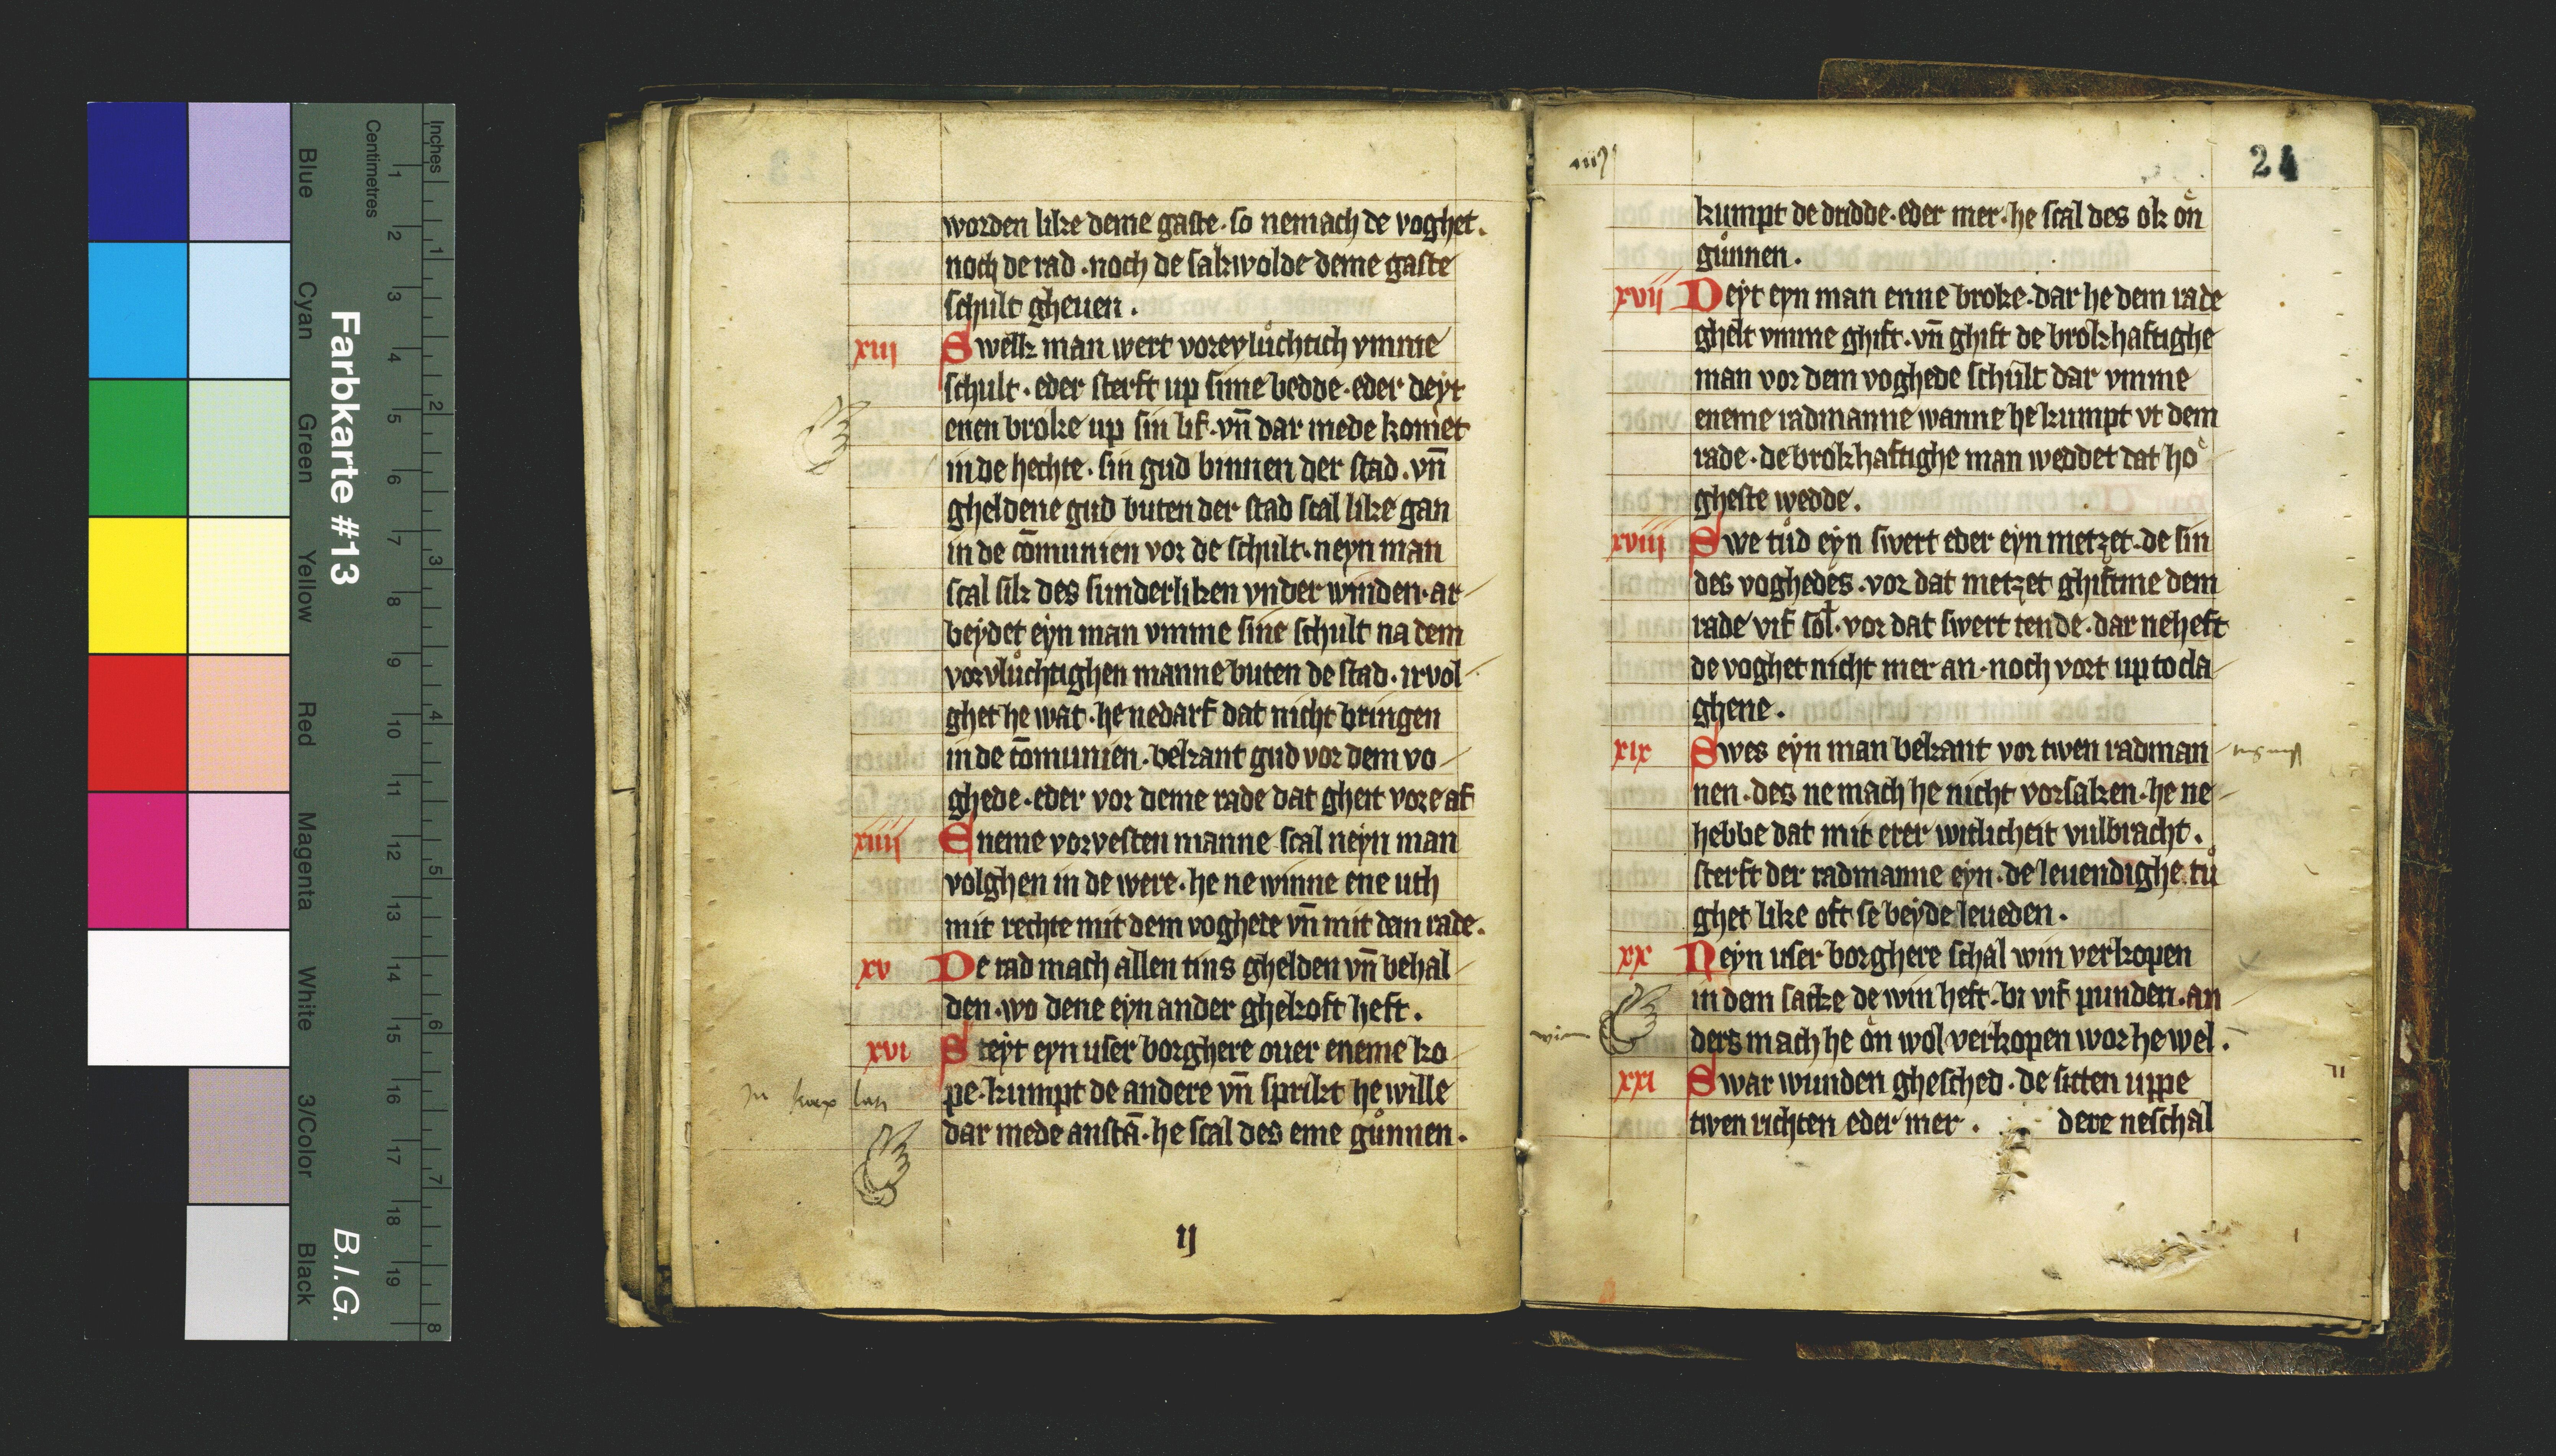 Inches
Centimetres
Blue
Cyan
Green
Yellow
Red
Magenta
White
3/Color
Black
Farbkarte #13
B.I.G.
worden like deme gaste · so nemach de voghet .
noch de rad · noch de sakwolde deme gaste
schult gheuen .
xiij Swelk man wert vorevluͦchtich vmme
schult · eder sterft up sime bedde · eder deyt
enen broke up sin lif · vn̄ dar mede komet
in de hechte · sin gud binnen der stad · vn̄
gheldene gud buten der stad scal like gan
in de cōmunien vor de schult · neyn man
scal sik des sunderliken vnder winden · ar
beydet eyn man vmme sine schult na dem
vorvluͦchtighen manne buten de stad · irvol
ghet he wat · he nedarf dat nicht bringen
in de cōmunien · bekant gud vor dem vo
ghede · eder vor deme rade dat gheit vore af
xiiij Eneme vorvesten manne scal neyn man
volghen in de were · he ne winne ene uth
mit rechte mit dem voghete vn̄ mit dem rade .
xv De rad mach allen tins ghelden vn̄ behal
den · wo dene eyn ander ghekoft heft .
xvi Steyt eyn user borghere ouer eneme ko
pe · kumpt de andere vn̄ sprikt he wille
dar mede anstā · he scal des eme guͦnnen .
ij
24
kumpt de dridde · eder mer · he scal des ok oͤn
guͦnnen .
xvij Deyt eyn man enne broke · dar he dem rade
ghelt vmme ghift · vn̄ ghift de brokhaftighe
man vor dem voghede schult dar vmme
eneme radmanne wanne he kumpt vt dem
rade · de brokhaftighe man weddet dat hoͤ
gheste wedde .
xviij Swe tuͦd eyn swert eder eyn metzet · de sin
des voghedes · vor dat metzet ghiftme dem
rade vif sol · vor dat swert tende · dar neheft
de voghet nicht mer an · noch vort up to cla
ghene .
xix Swes eyn man bekant vor twen radman
nen · des ne mach he nicht vorsaken · he ne
hebbe dat mit erer witlicheit vulbracht .
sterft der radmanne eyn · de leuendighe tuͦ
ghet like oft se beyde leueden .
xx Neyn user borghere schal win verkopen
in dem sacke de win heft · bi vif punden · an
ders mach he oͤn wol verkopen wor he wel .
xxi Swar wunden ghesched · de sitten uppe
twen richten eder mer . dere neschal